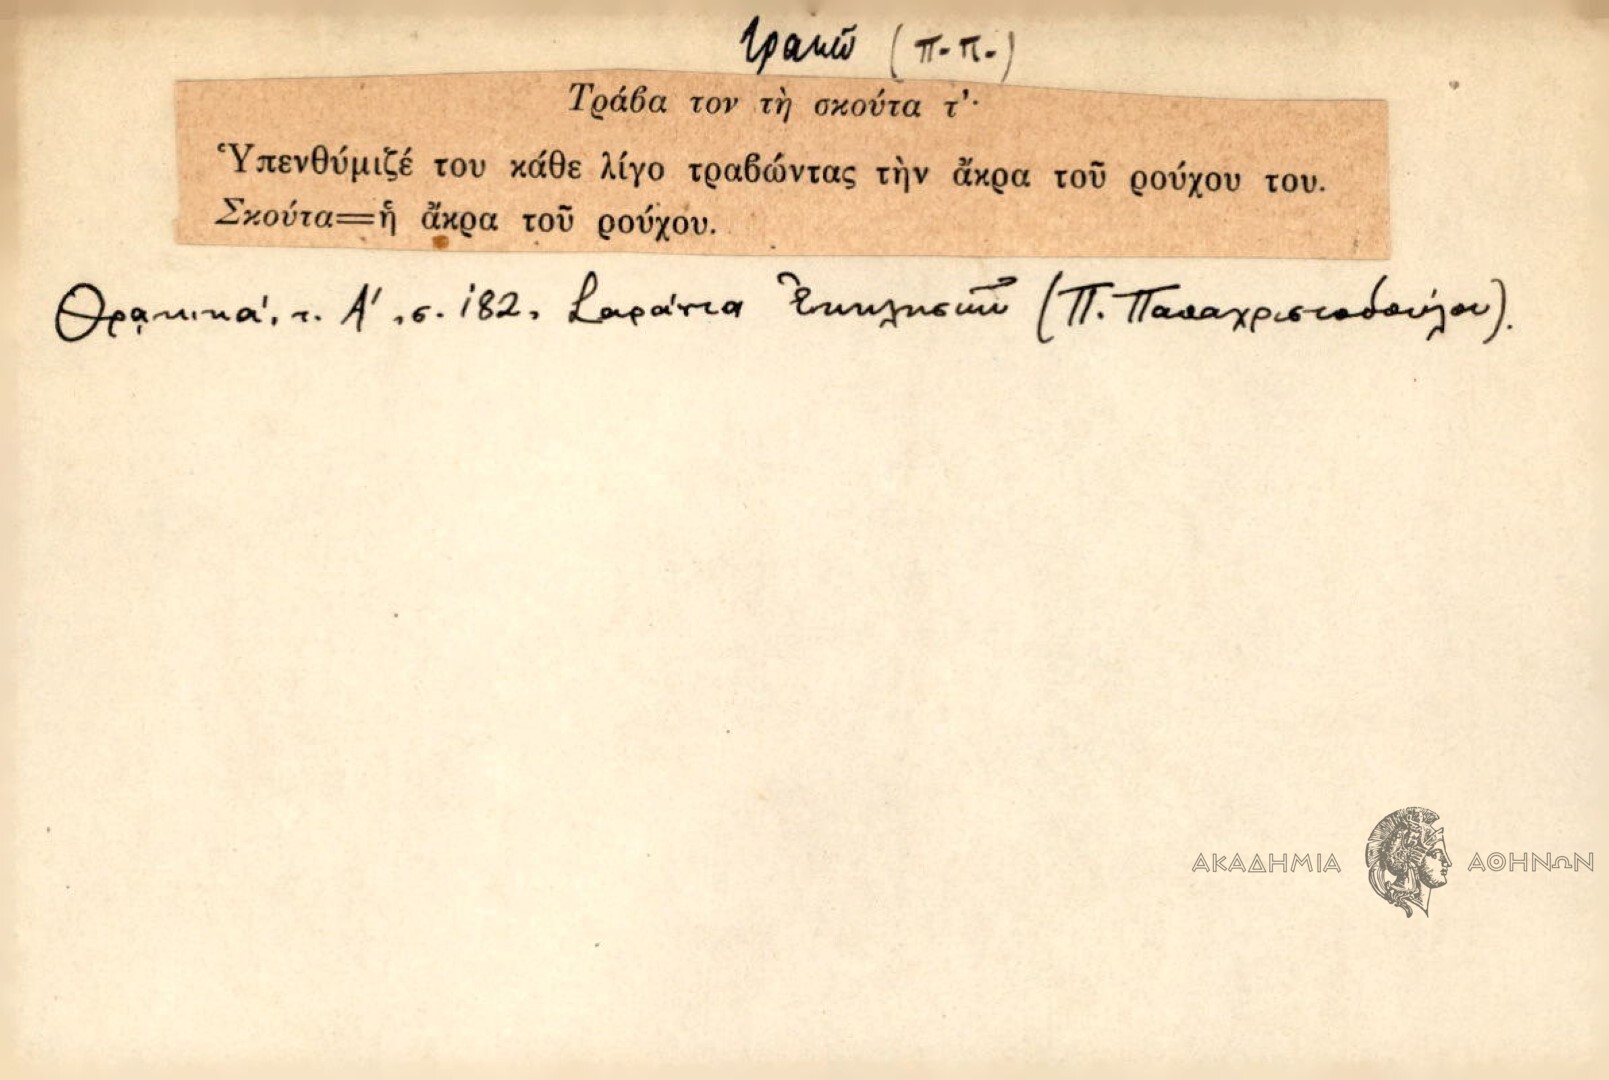 τραβῶ (π.π.)
Τράβα τον τὴ σκούτα τ'·
Ὑπενθύμιζέ του κάθε λίγο τραβώντας τὴν ἄκρα τοῦ ρούχου του.
Σκούτα=ἡ ἄκρα τοῦ ρούχου.
Θρακικά, τ. Α', σ. 182, Σαράντα Ἐκκλησιῶν (Π. Παπαχριστοδούλου).
ΑΚΑΔΗΜΙΑ ΑΘΗΝΩΝ